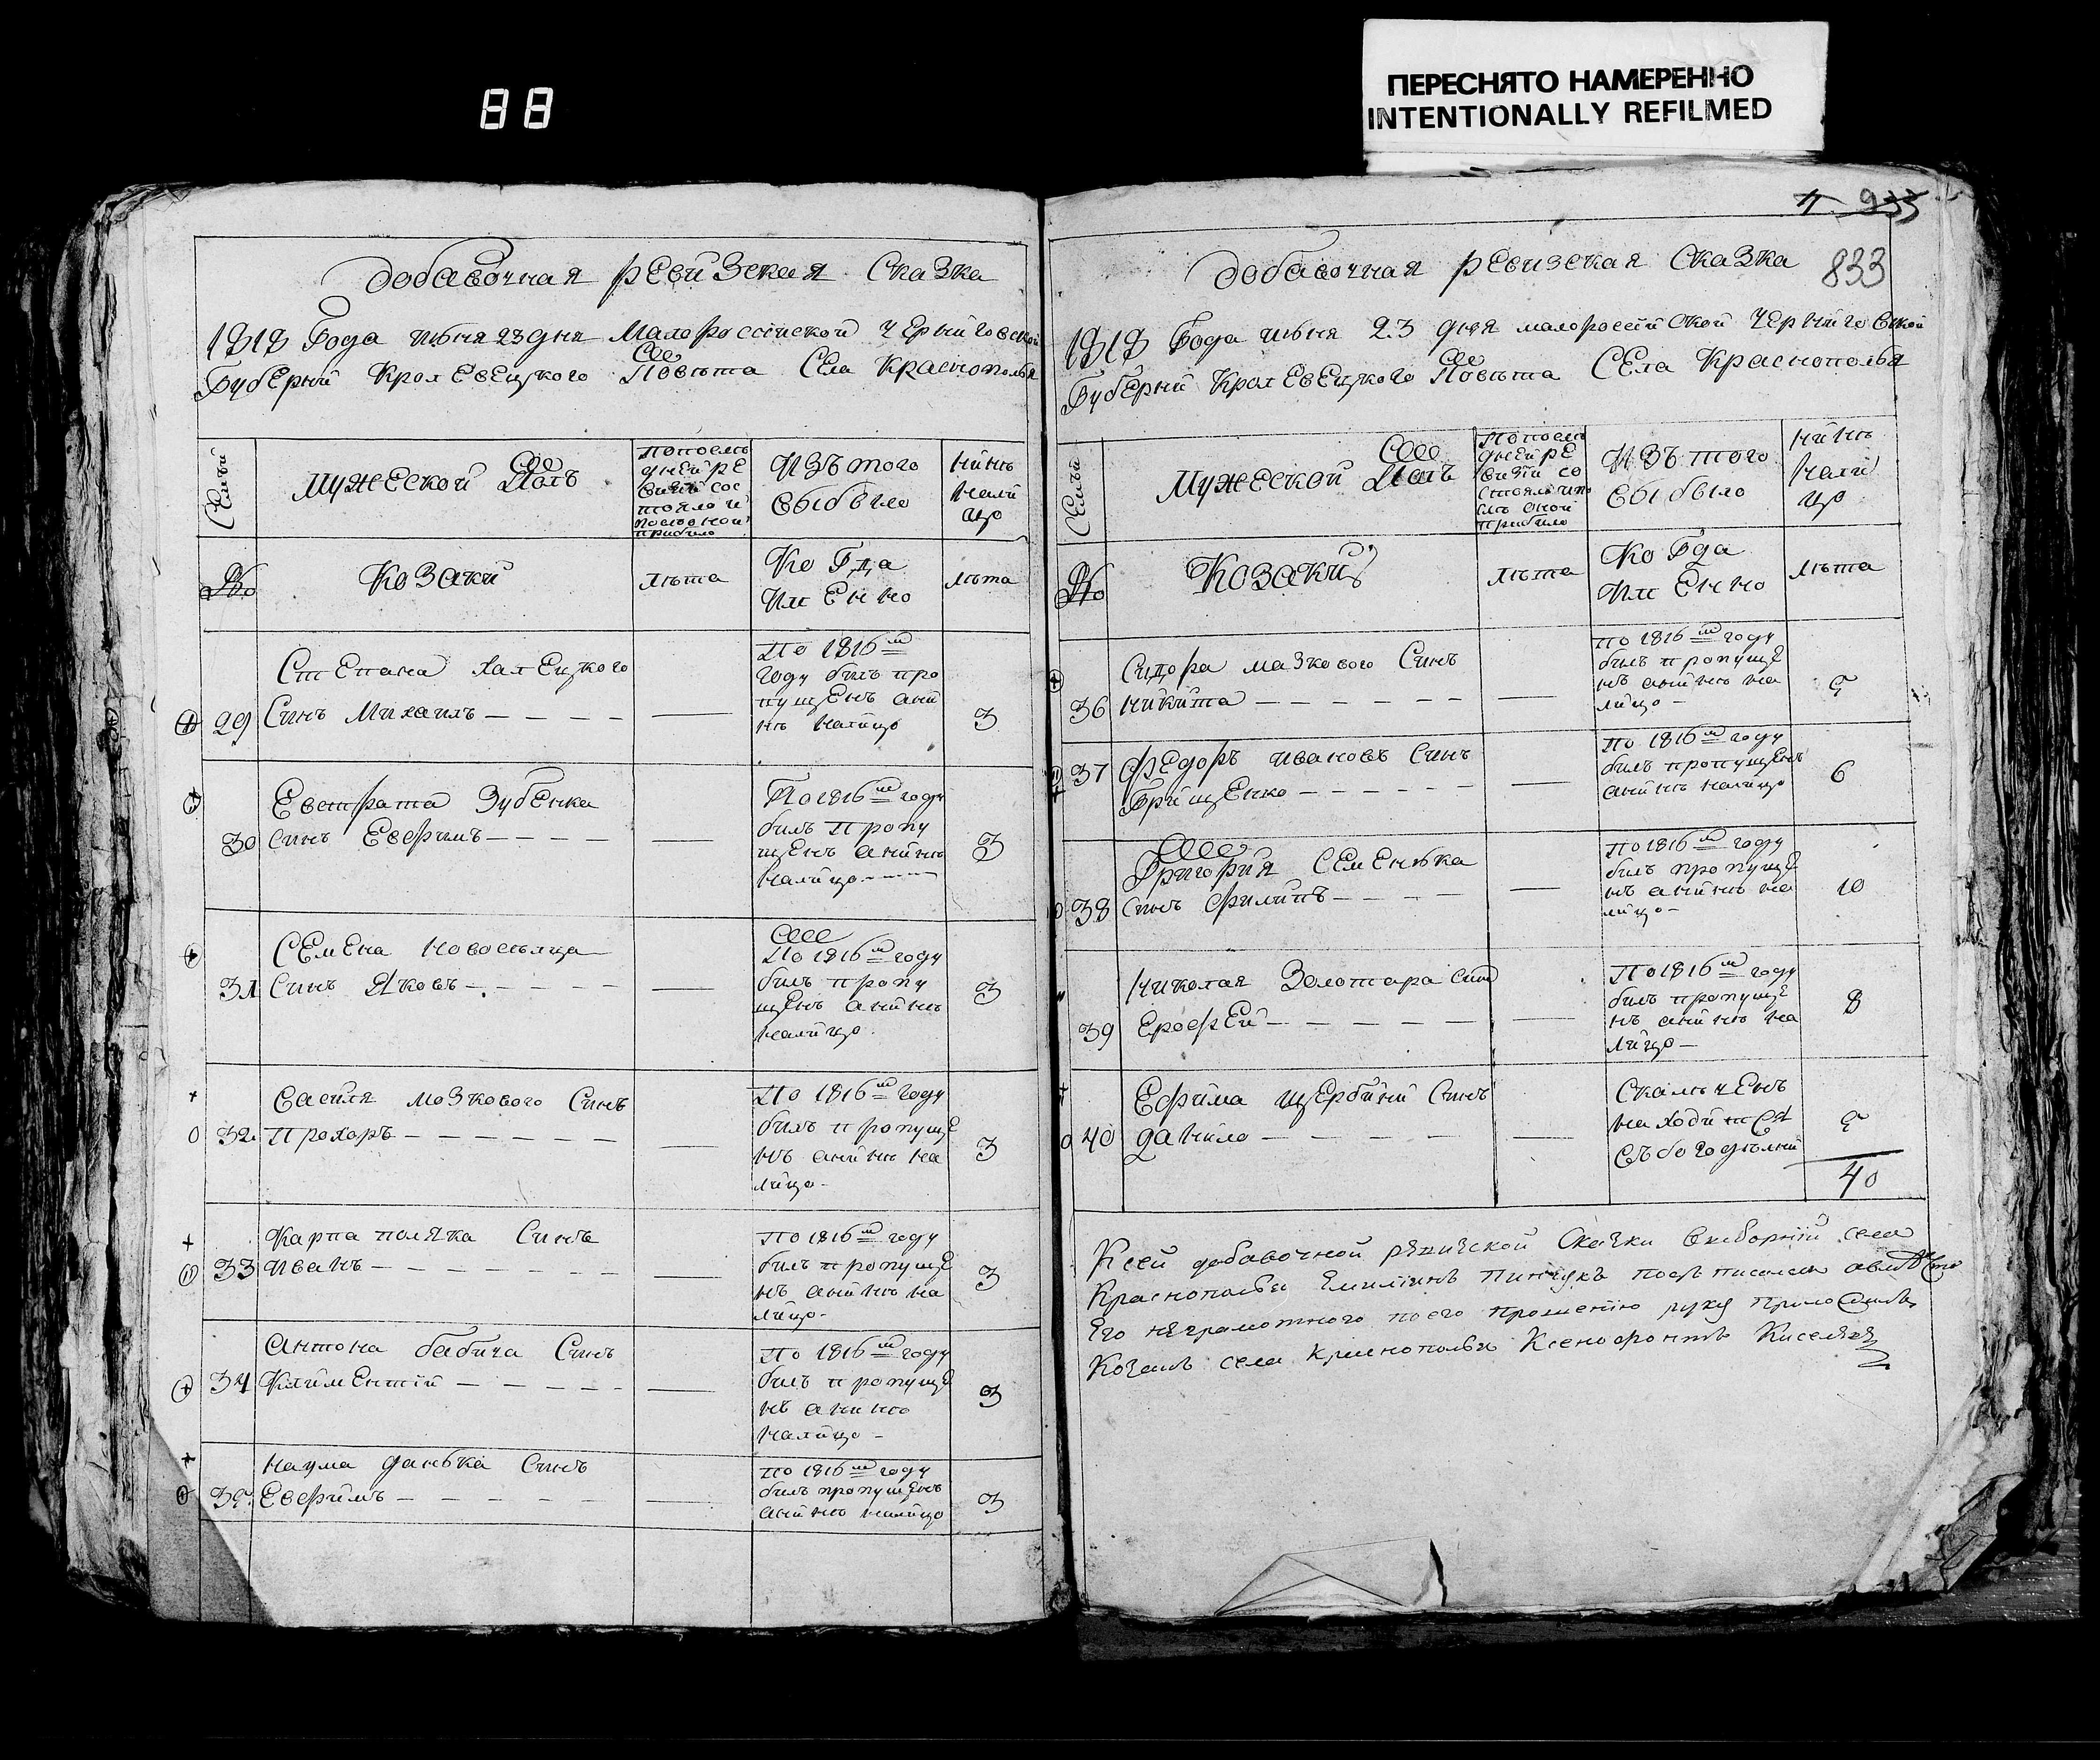 88
ПЕРЕСНЯТО НАМЕРЕННО
INTENTIONALLY REFILMED
добавочная ревизская сказка
1818 Года июня 23 дня Малороссійской Черниговской
Губерній Кролевецкого Повѣта Села Краснополья
Семьи
Мужеской Полъ
По послѣ
дней ре
визіи сос
тояло и
послѣ оной
прибыло
Изъ того
выбыло
Нинѣ
нали
цо
№
Козаки
лѣта
Когда
Именно
лѣта
Степана Халецкого
29 Синъ Михаилъ
По 1816 м
году билъ про
пущенъ а ни
нѣ налицо
3
Евстрата Зубенка
30 синъ Евфимъ
По 1816 м году
билъ пропу
щенъ а нинѣ
налицо
3
Семена Новосельца
31 Синъ Яковъ
По 1816 м году
билъ пропу
щенъ а нинѣ
налицо
3
Василя Мозкового Синъ
32 Прохоръ
По 1816 м году
билъ пропуще
нъ а нинѣ на
лицо
3
Карпа поляка Синъ
33 Иванъ
По 1816 м году
билъ пропуще
нъ а нинѣ на
лицо
3
Антона бабича Синъ
34 Климентій
По 1816 м году
билъ пропуще
нъ а нинѣ
налицо
3
Наума данька Синъ
35 Евфимъ
По 1816 м году
билъ пропущенъ
а нинѣ налицо
3
933
833
добавочная ревизская Сказка
1818 Года июня 23 дня малороссійской Черниговской
Губерній Кролевецкого Повѣта Села Краснополья
Семьи
Мужеской Полъ
По послѣ
дней ре
визіи со
стояло и по
слѣ оной
прибыло
Изъ того
выбыло
Нинѣ
нали
цо
№
Козаки
лѣта
Когда
Именно
лѣта
Сидора мазкового Синъ
36 Никита
По 1816 м году
билъ пропуще
нъ а нинѣ на
лицо
5
37 Федоръ Ивановъ Синъ
Грищенко
По 1816 м году
билъ пропущенъ
а нинѣ налицо
6
Григорія Семенька
38 Синъ Филипъ
По 1816 м году
билъ пропуще
нъ а нинѣ на
лицо
10
Николая Золотара Синъ
39 Ерофей
По 1816 м году
билъ пропуще
нъ а нинѣ на
лицо
8
Ефима Щербини Синъ
40 данило
находится
въ богодѣлни
5
40
К сей добавочной ревизской Скаски виборній села
Краснополья Пинчукъ а вместо
Его неграмотного по его прошенію руку приложилъ
Козакъ села Краснополья Ксенофонтъ Киселя